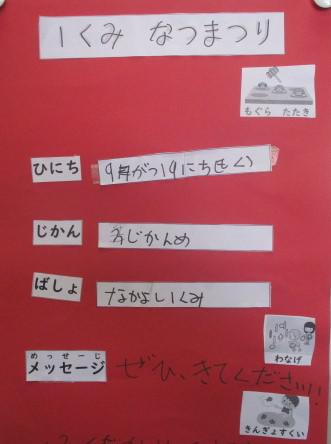 1くみ なつまつり
もぐら たたき
ひにち
9がつ19にち(もく)
じかん
じかんめ
ばしょ
なかよしいくみ
わなげ
めっせーじ
メッセージ ぜひ、きてください!!
きんぎょすくい